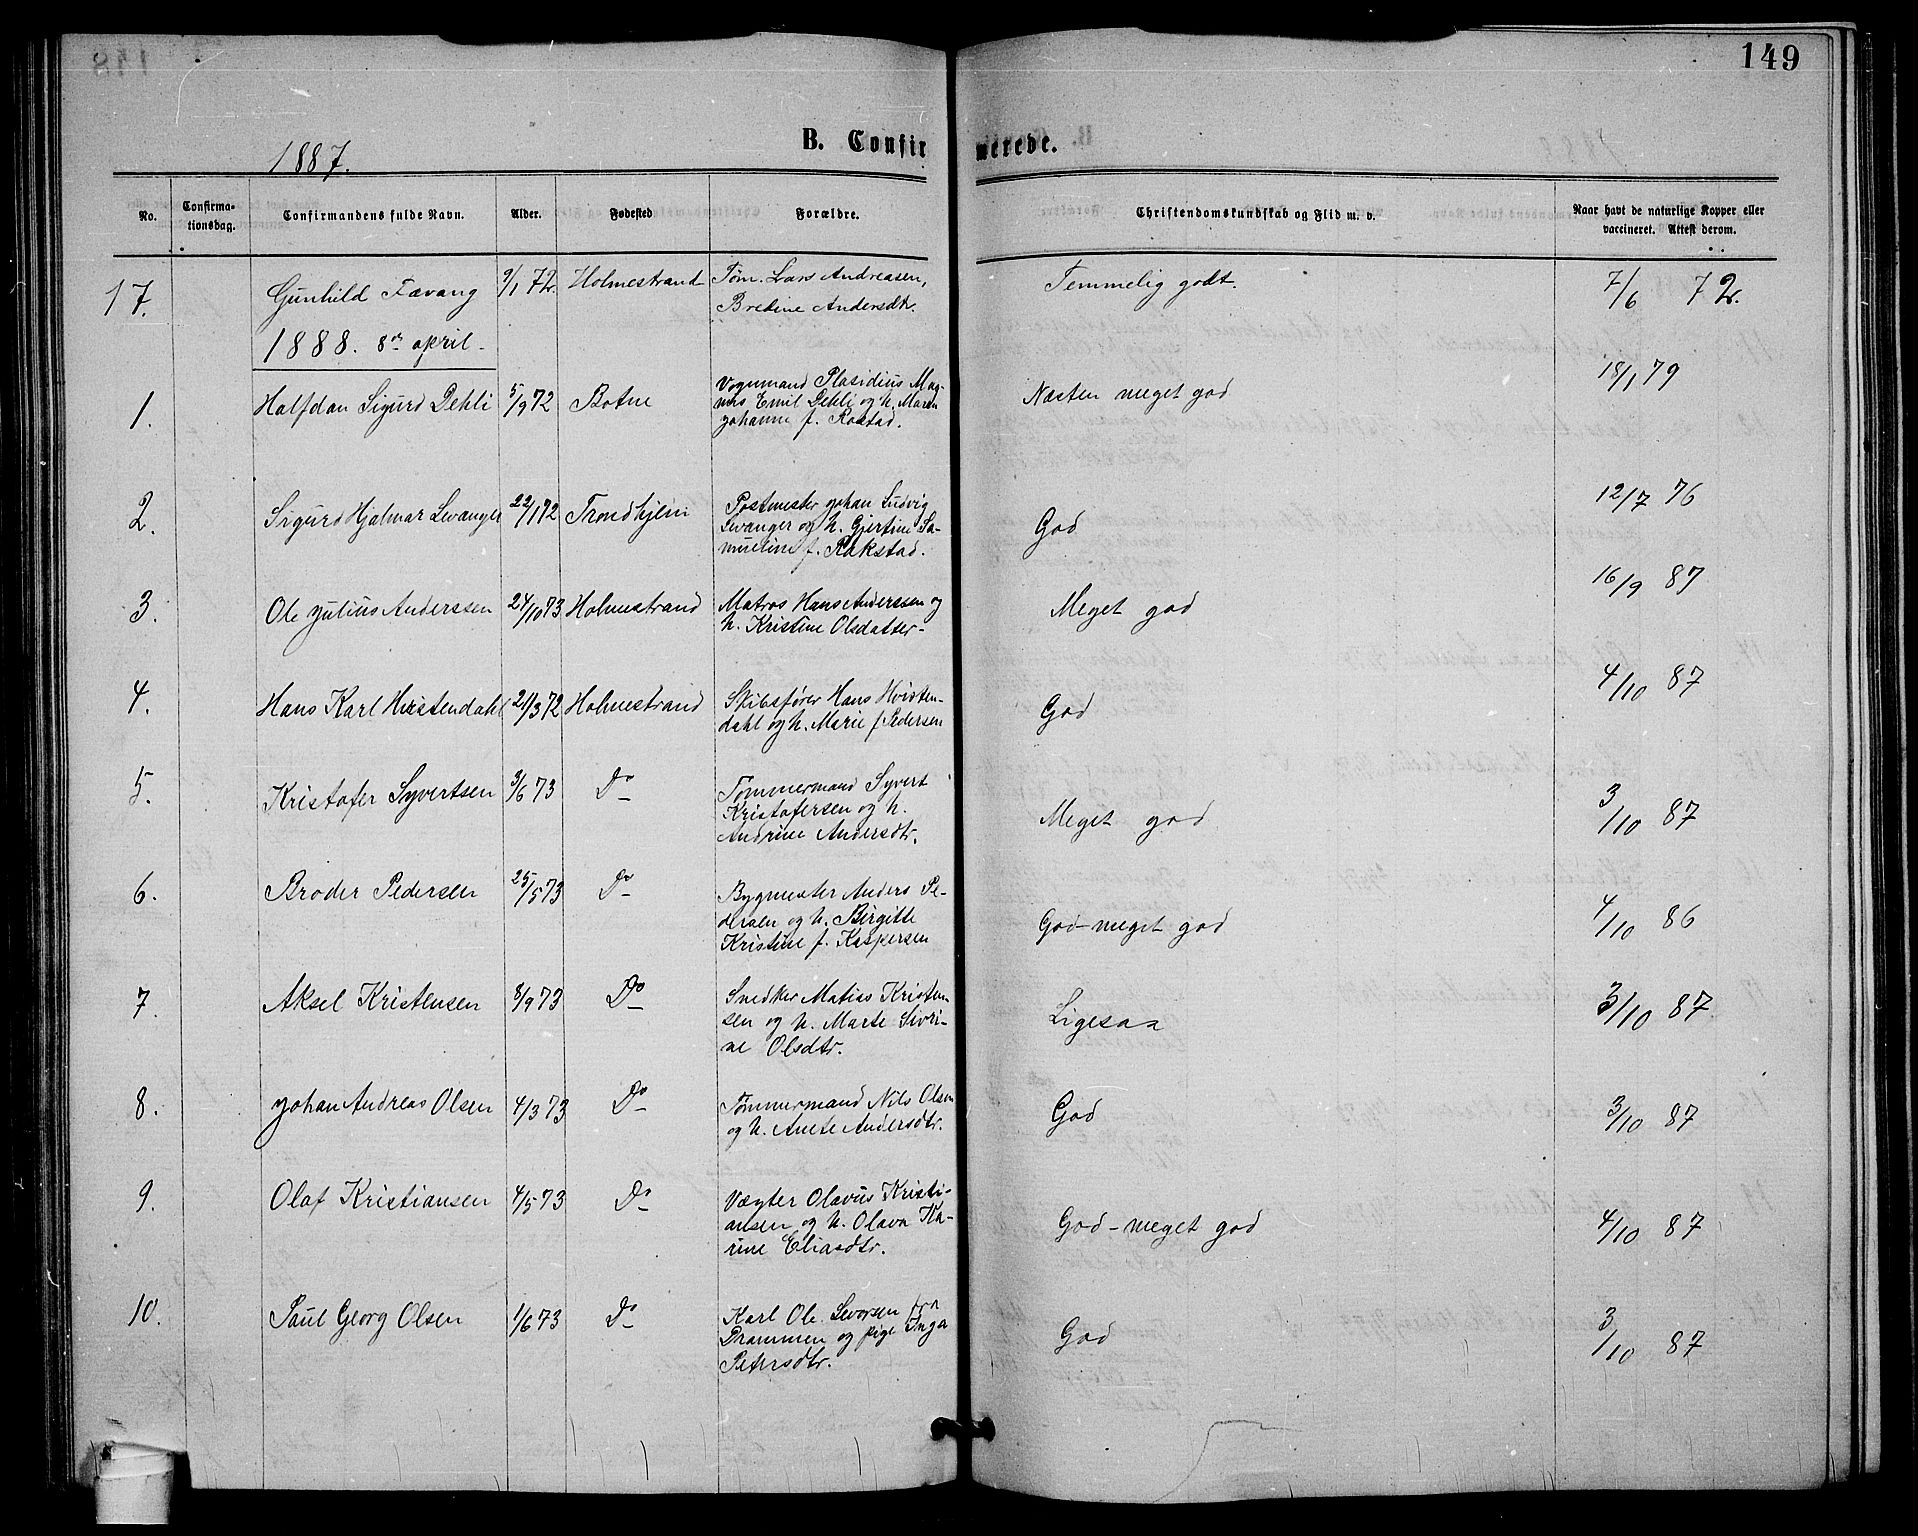 149
1887.
B. Confirmerede.
No. Confirmationsdag. Confirmandens fulde Navn. Alder. Fødested Forældre. Christendomskundskab og Flid m. v. Naar havt de naturlige Kopper eller vaccineret. Attest derom.
17. Gunhild Favang 9/1 72. Holmestrand Tøm. Lars Andreasen, Temmelig godt. 7/6 72.
Bredine Andersdtr.
1888. 8de april.
1. Halfdan Sigurd Dehli 5/9 72 Botne Vognmand Plasidius Mag- Næsten meget god 18/1 79
nus Emil Dehli og h. Maren
Johanne f. Rostad.
2. Sigurd Hjalmar Levanger 22/1 72 Trondhjem Postmester Johan Ludvig God 12/7 76
Levanger og h. Gjertine Sa-
mueline f. Rakstad.
3. Ole Julius Anderssen 24/10 73 Holmestrand Matros Hans Anderssen og Meget god 16/9 87
h. Kristine Olsdatter-
4. Hans Karl Hvistendahl 21/3 72 Holmestrand Skibsfører Hans Hvisten- God 4/10 87
dahl og h. Marie f. Pedersen
5. Kristofer Syvertsen 3/6 73 Do Tømmermand Syvert Meget god 3/10 87
Kristofersen og h.
Andrine Andersdtr.
6. Broder Pedersen 25/5 73 Do Bygmester Anders Pe- God-meget god 4/10 86
dersen og h. Birgitte
Kristine f. Kaspersen
7. Aksel Kristensen 8/9 73 Do Snedker Matias Kristen- Ligesaa 3/10 87
sen og h. Marte Sivri-
ne Olsdtr.
8. Johan Andreas Olsen 4/3 73 Do Tømmermand Nils Olsen God 3/10 87
og h. Anete Andersdtr.
9. Olaf Kristiansen 4/5 73 Do Vægter Olavus Kristi- God-meget god 4/10 87
ansen og h. Olava Ka-
rine Eliasdtr.
10. Paul Georg Olsen 1/6 73 Do Karl Ole Levorsen fra God 3/10 87
Drammen og pige Inga
Petersdtr.